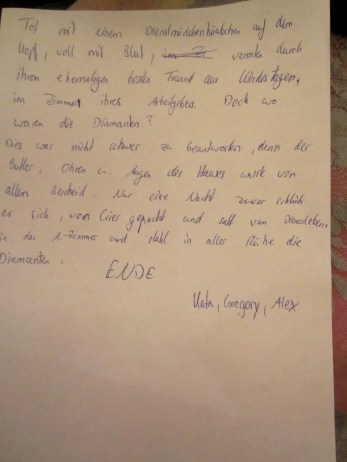 Tot mit einem Dienstmädchenhäubchen auf dem
Kopf, voll mit Blut, verraten durch
ihren ehemaligen besten Freund aus Kindertagen,
im Zimmer ihres Arbeitgebers. Doch wo
waren die Diamanten?
Dies war nicht schwer zu beantworten, denn der
Butler, Ohren u. Augen des Hauses wusste von
allem Bescheid. Nur eine Nacht zuvor schlich
er sich, von Gier gepackt und satt vom Dienstleben,
in das A.-Zimmer und stahl in aller Ruhe die
Diamanten.
ENDE
Kata, Gregory, Alex